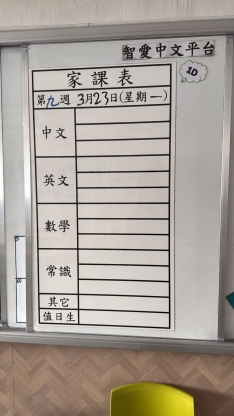 智愛中文平台
1D
家課表
第九週 3月23日(星期一)
中文
英文
數學
常識
其它
值日生